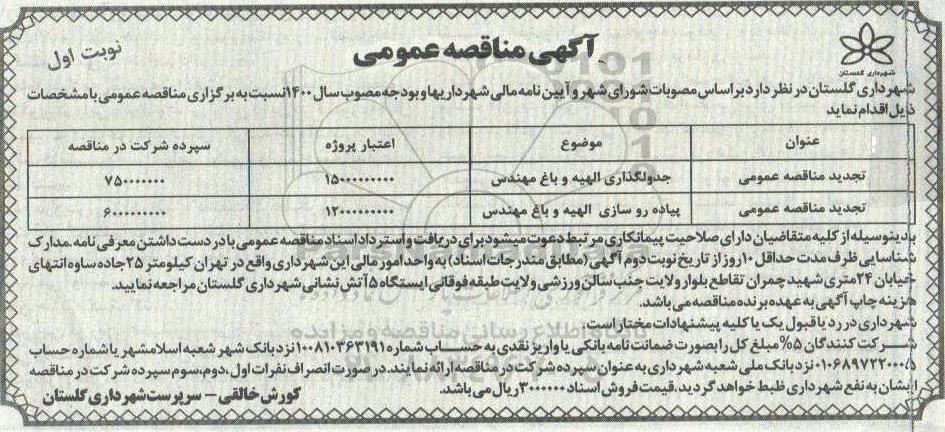 آگهی مناقصه عمومی
نوبت اول
شهرداری گلستان
شهرداری گلستان در نظر دارد براساس مصوبات شورای شهر و آیین نامه مالی شهرداریها و بودجه مصوب سال ۱۴۰۰ نسبت به برگزاری مناقصه عمومی با مشخصات
ذیل اقدام نماید
عنوان موضوع اعتبار پروژه سپرده شرکت در مناقصه
تجدید مناقصه عمومی جدولگذاری الهیه و باغ مهندس ۱۵۰۰۰۰۰۰۰۰۰ ۷۵۰۰۰۰۰۰۰
تجدید مناقصه عمومی پیاده رو سازی الهیه و باغ مهندس ۱۲۰۰۰۰۰۰۰۰۰ ۶۰۰۰۰۰۰۰۰۰
بدینوسیله از کلیه متقاضیان دارای صلاحیت پیمانکاری مرتبط دعوت میشود برای دریافت و استرداد اسناد مناقصه عمومی با در دست داشتن معرفی نامه، مدارک
شناسایی ظرف مدت حداقل ۱۰ روز از تاریخ نوبت دوم آگهی (مطابق مندرجات اسناد) به واحد امور مالی این شهرداری واقع در تهران کیلومتر ۲۵ جاده ساوه انتهای
خیابان ۲۴ متری شهید چمران تقاطع بلوار ولایت جنب سالن ورزشی ولایت طبقه فوقانی ایستگاه ۵ آتش نشانی شهرداری گلستان مراجعه نمایید.
هزینه چاپ آگهی به عهده برنده مناقصه می باشد.
شهرداری در رد یا قبول یک یا کلیه پیشنهادات مختار است.
شرکت کنندگان ۵% مبلغ کل را بصورت ضمانت نامه بانکی یا واریز نقدی به حساب شماره ۱۰۰۸۱۰۳۶۳۱۹۱ نزد بانک شهر شعبه اسلامشهر یا شماره حساب
۰۱۰۶۸۹۷۲۲۰۰۰۵ نزد بانک ملی شعبه شهرداری به عنوان سپرده شرکت در مناقصه ارائه نمایند. در صورت انصراف نفرات اول، دوم، سوم سپرده شرکت در مناقصه
ایشان به نفع شهرداری ظبط خواهد گردید. قیمت فروش اسناد ۳۰۰۰۰۰۰ ریال می باشد.
کورش خالقی – سرپرست شهرداری گلستان